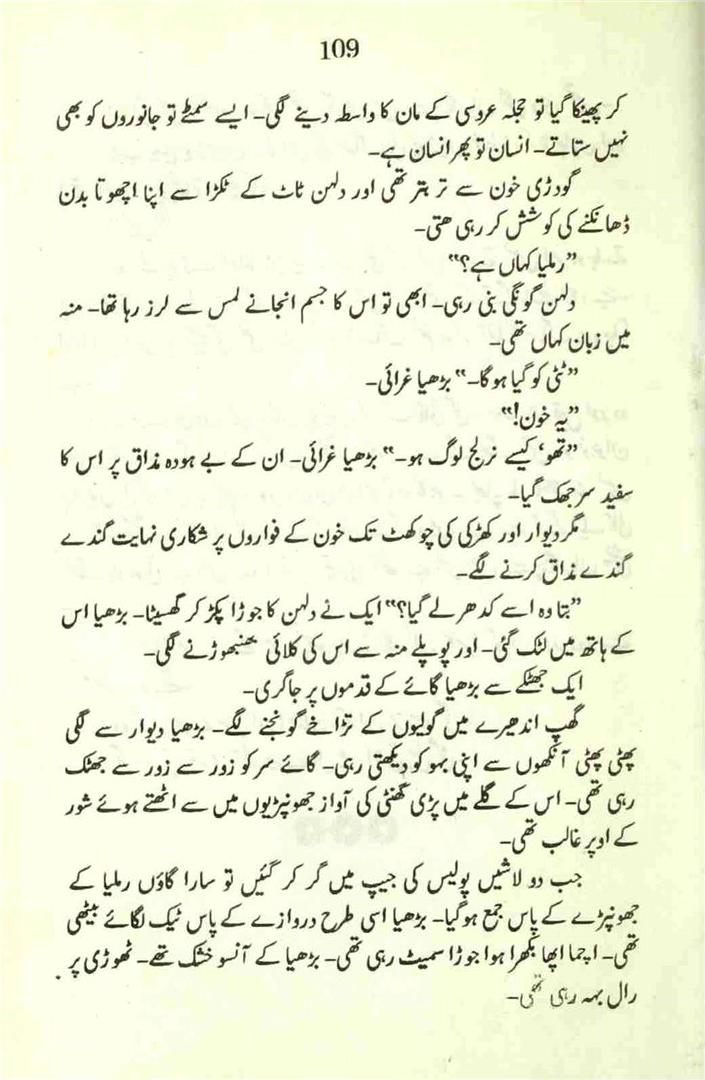 109
کر پھینکا گیا تو حجلہ عروسی کے مان کا واسطہ دینے لگی۔ ایسے سمٹے تو جانوروں کو بھی
نہیں ستاتے۔ انسان تو پھر انسان ہے۔
گودڑی خون سے تر بتر تھی اور دلہن ٹاٹ کے ٹکڑا سے اپنا اچھوتا بدن
ڈھانکنے کی کوشش کر رہی ھتی۔
”رملیا کہاں ہے؟“
دلہن گونگی بنی رہی۔ ابھی تو اس کا جسم انجانے لمس سے لرز رہا تھا۔ منہ
میں زبان کہاں تھی۔
”ٹٹی کو گیا ہوگا۔“ بڑھیا غرائی۔
”یہ خون!“
”تھو‘ کیسے نرلج لوگ ہو۔“ بڑھیا غرائی۔ ان کے بے ہودہ مذاق پر اس کا
سفید سر جھک گیا۔
مگر دیوار اور کھڑکی کی چوکھٹ تک خون کے فواروں پر شکاری نہایت گندے
گندے مذاق کرنے لگے۔
”بتا وہ اسے کدھر لے گیا؟“ ایک نے دلہن کا جوڑا پکڑ کر گھسیٹا۔ بڑھیا اس
کے ہاتھ میں لٹک گئی۔ اور پوپلے منہ سے اس کی کلائی بھنبھوڑنے لگی۔
ایک جھٹکے سے بڑھیا گائے کے قدموں پر جاگری۔
گھپ اندھیرے میں گولیوں کے تڑاخے گونجنے لگے۔ بڑھیا دیوار سے لگی
پھٹی پھٹی آنکھوں سے اپنی بہو کو دیکھتی رہی۔ گائے سر کو زور سے زور سے جھٹک
رہی تھی۔ اس کے گلے میں پڑی گھنٹی کی آواز جھونپڑیوں میں سے اٹھتے ہوئے شور
کے اوپر غالب تھی۔
جب دو لاشیں پولیس کی جیپ میں گر کر گئیں تو سارا گاؤں رملیا کے
جھونپڑے کے پاس جمع ہوگیا۔ بڑھیا اسی طرح دروازے کے پاس ٹیک لگائے بیٹھی
تھی۔ اچما اپھا بکھرا ہوا جوڑا سمیٹ رہی تھی۔ بڑھیا کے آنسو خشک تھے۔ ٹھوڑی پر
رال بہہ رہی تھی۔